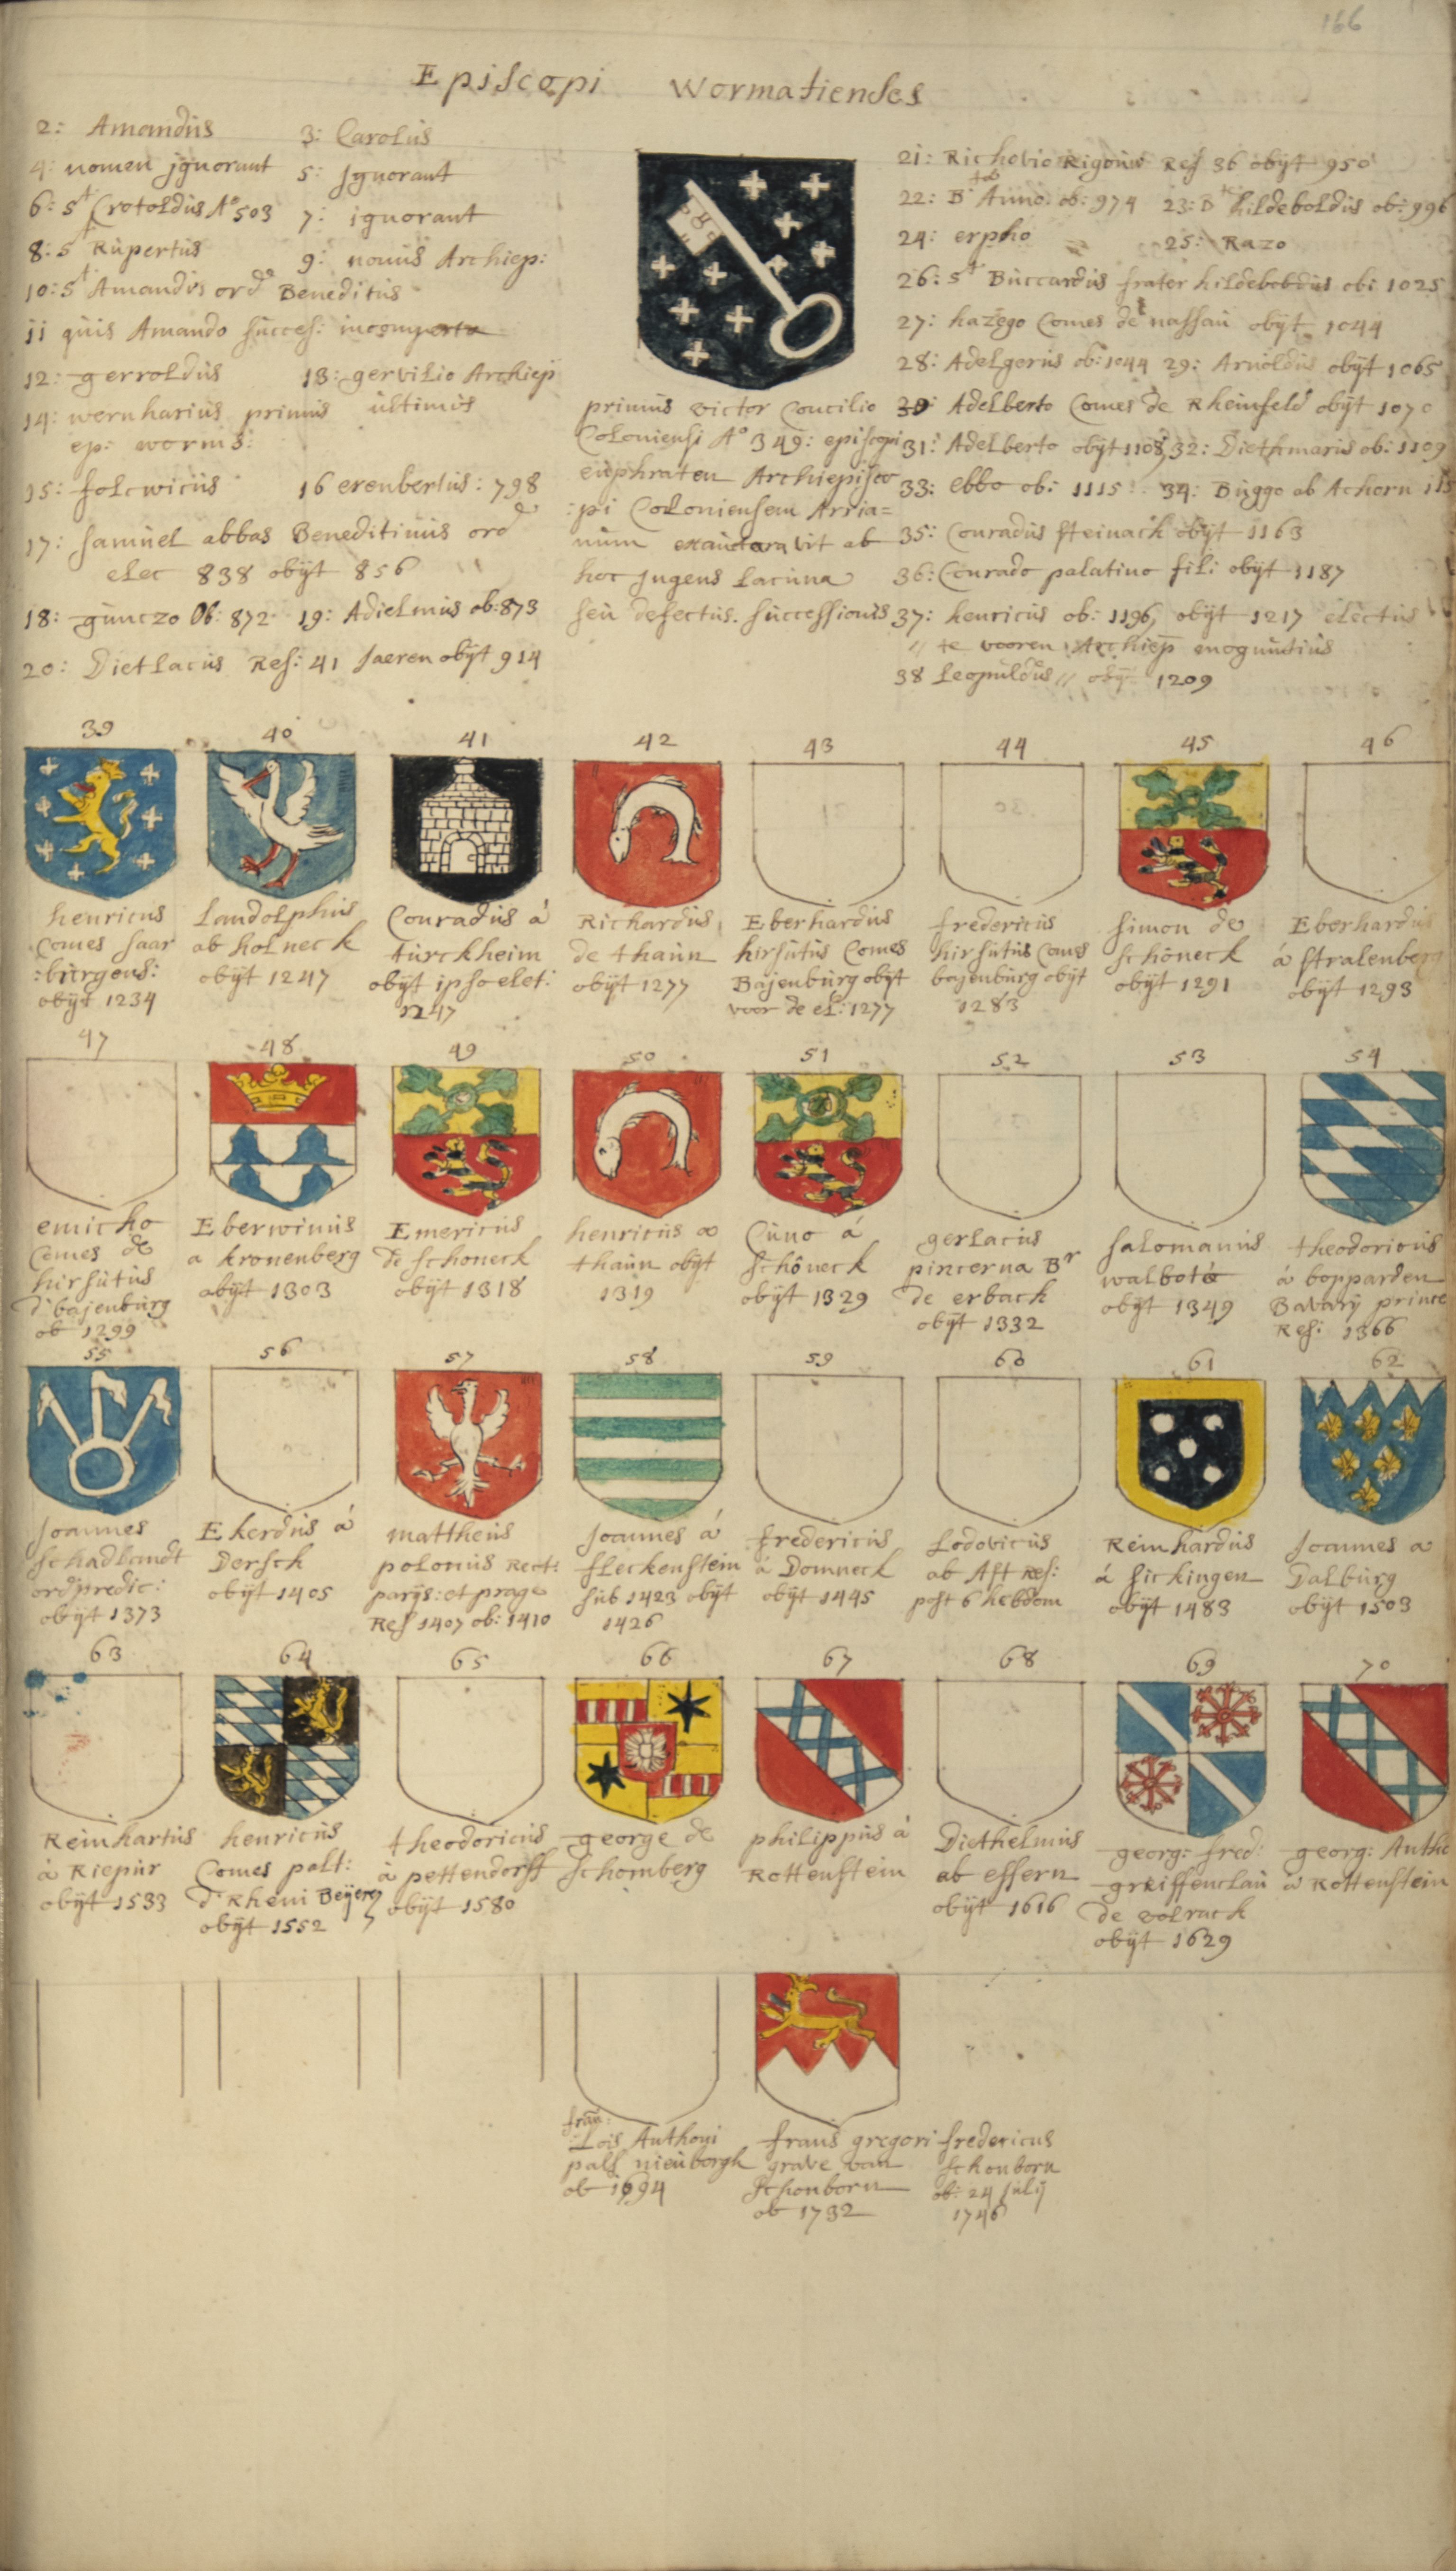 166
Episcopi Wormatienses
2: Amandus 3: Carolus
4: nomen jgnorant 5: Jgnorant
6: St Crotoldus Ao 503 7: ignorant
8: St Rupertus 9: nouus Archiep:
10: St Amandus ord Beneditus
11 quis Amando succes: incomperto
12: gerroldus 13: gervilio Archiep
ultimus
14: wernharius primus
ep: worms:
15: folcwicus 16 erenbertus: 798
17: Samuel abbas Beneditinus ord
elec 838 obijt 856
18: gunczo Ob: 872 19: Adielmus ob: 873
20: Dietlacus Res: 41 Jaeren obijt 914
primus victor Concilio
Coloniensi Ao 349: episcopi
euphraten Archiepisco
:pi Coloniensem Arria=
num exauctoravit ab
hoc jngens lacuna
seu defectus. successionis
21: Richovio Rigouis Res 36 obijt 950
22: B Anno ob: 974 23: B hildeboldus ob: 996
24: erpho 25: Razo
26: St Buccardus frater hildeboldus obi 1025
27: hazego Comes de nassau obijt 1044
28: Adelgerus ob: 1044 29: Arnoldus obijt 1065
30: Adelberto Comes de Rheinfeld obijt 1070
31: Adelberto obijt 1108 32: Diethmarus ob: 1109
33: ebbo ob: 1115: 34: Buggo ab Achorn
35: Conradus steinach obijt 1163
36: Conrado palatino fil: obijt 1187
37: henricus ob: 1196, obijt 1217 electus
" te vooren Archiep moguntius
38 Leopuldus " obijt 1209
39 40 41 42 43 44 45 46
henricus
Comes saar
:burgens:
obijt 1234
Landolphus
ab holneck
obijt 1247
Conradus á
turckheim
obijt ipso elet:
1247
Richardus
de thaun
obijt 1277
Eberhardus
hirsutus Comes
Bajenburg obijt
voor de el: 1277
fredericus
hirsutus Comes
bajenburg obijt
1283
Simon de
schoneck
obijt 1291
Eberhardus
á stralenberg
obijt 1293
47 48 49 50 51 52 53 54
emicho
Comes de
hirsutus
d'bajenburg
ob 1299
Eberwinus
a kronenberg
obijt 1303
Emericus
de schoneck
obijt 1318
henricus a
thaun obijt
1319
Cuno á
schôneck
obijt 1329
gerlacus
pincerna Br
de erbach
obijt 1332
salomanus
walbot
obijt 1349
theodoricus
á bopparden
Bavarij prince
Res: 1366
55 56 57 58 59 60 61 62
Joannes
schadlandt
ord predic:
obijt 1373
Ekerdus á
Dersch
obijt 1405
mattheus
polonus Rect:
parijs: et prage
Res 1407 ob: 1410
Joannes á
fleckenstein
sub 1423 obijt
1426
fredericus
á Domneck
obijt 1445
Lodovicus
ab Ast Res:
post 6 hebdom
Reinhardus
á sickingen
obijt 1483
Joannes a
Dalburg
obijt 1503
63 64 65 66 67 68 69 70
Reinhartus
à Riepur
obijt 1533
henricus
Comes palt:
d'Rheni Beijeren
obijt 1552
theodoricus
à pettendorff
obijt 1580
george de
schomberg
philippus á
Rottenstein
Diethelmus
ab essern
obijt 1616
georg: fred:
greiffenclau
de volrack
obijt 1629
georg: Antho
a Rottenstein
fran:
Lois Anthoni
pals nieuborgh
ob 1694
frans gregori
grave van
schonborn
ob 1732
fredericus
schonborn
ob: 24 julij
1746